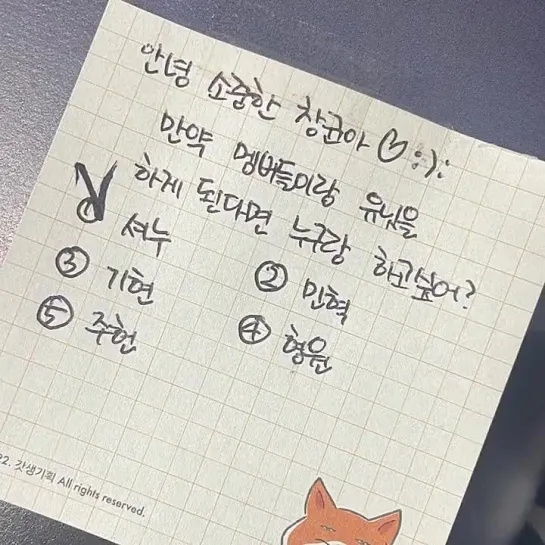 안녕 소중한 창균아 ♡ :):
만약 멤버들이랑 유닛을
하게 된다면 누구랑 하고싶어?
① 셔누
② 민혁
③ 기현
④ 형원
⑤ 주헌
22. 갓생기획 All rights reserved.